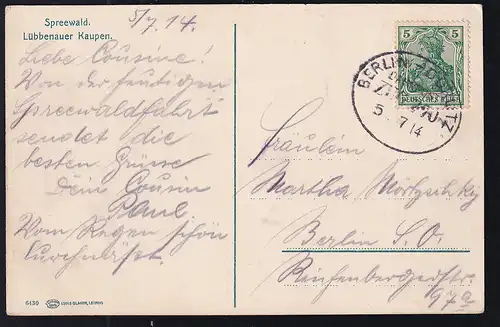 Spreewald.
Lübbenauer Kaupen.
5/7.14.
Liebe Cousine!
Von der heutigen
Spreewaldfahrt
sendet die
besten Grüsse
Dein Cousin
Paul.
Vom Regen schön
durchnässt.
5 5
DEUTSCHES REICH
BERLIN
5 7 14
Fräulein
Martha
Berlin S.O.
Reichenbergerstr.
97a
6430
LOUIS GLASER, LEIPZIG